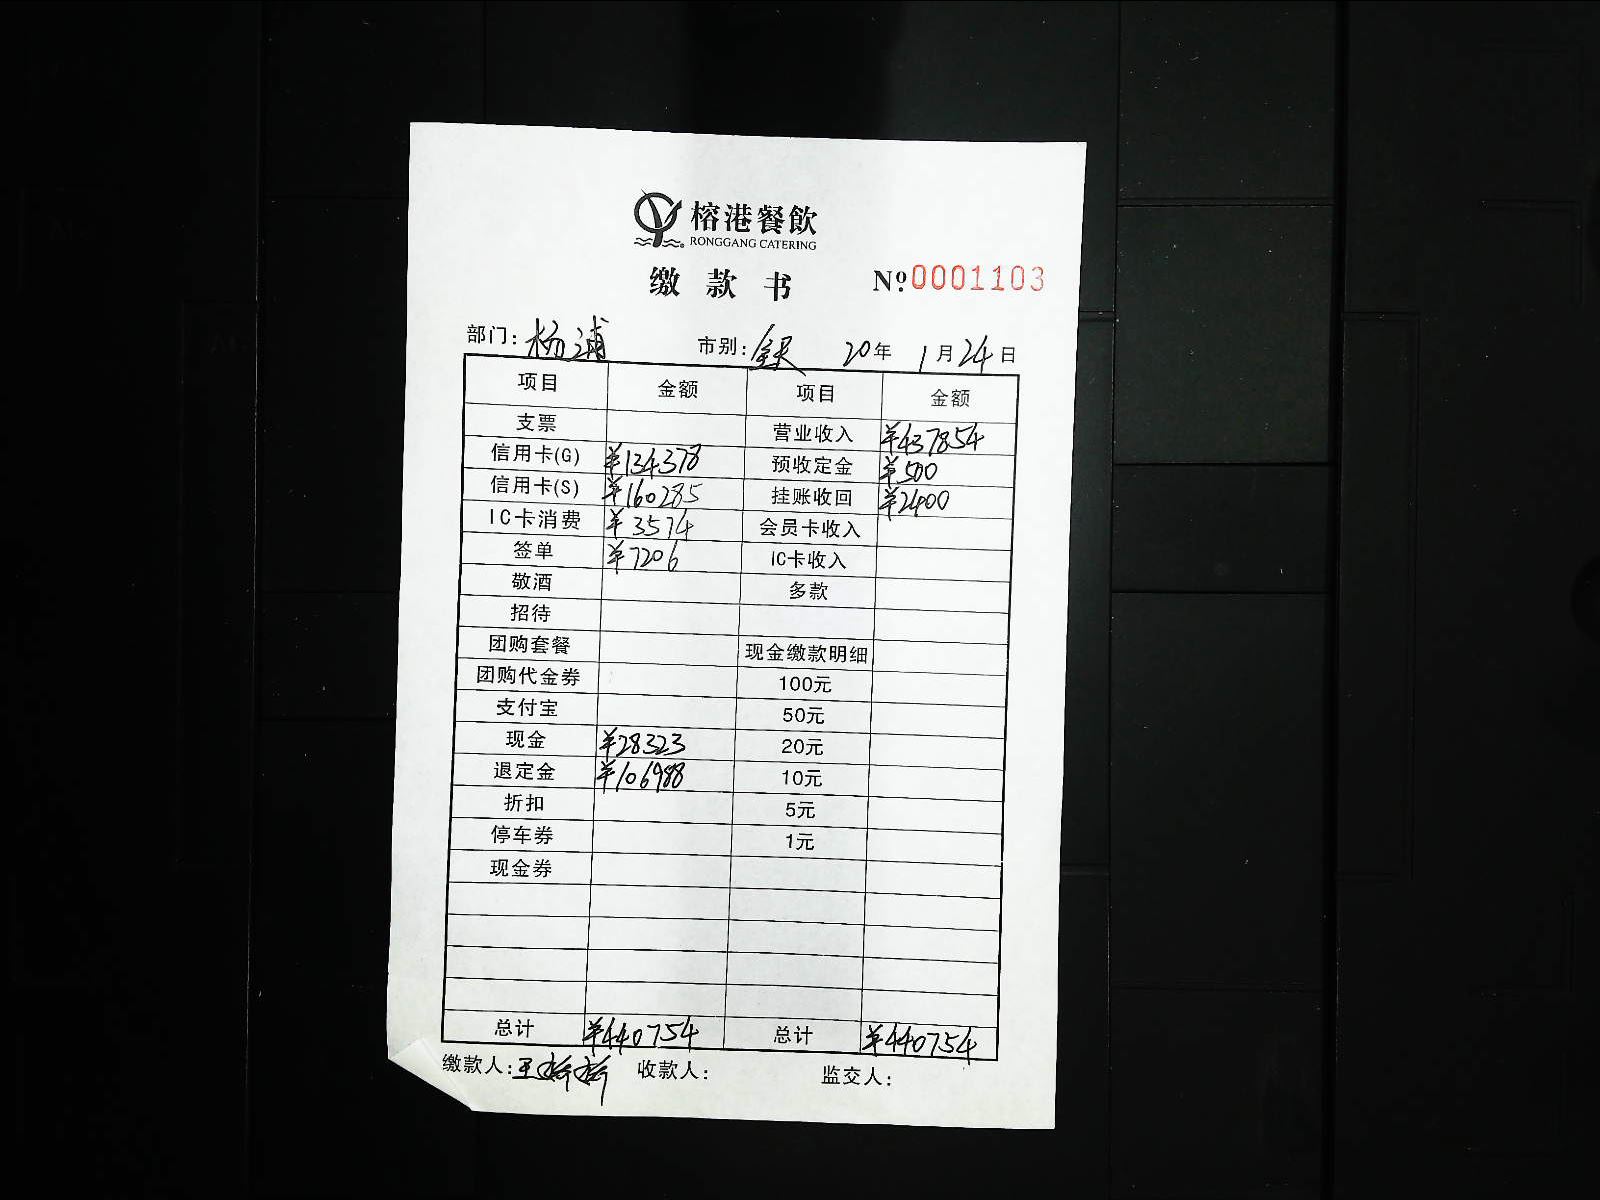 榕港餐飲
RONGGANG CATERING
缴款书 №0001103
部门：杨浦 市别： 20年1月24日
项目 金额 项目 金额
支票 营业收入 ¥437854
信用卡(G) ¥134378 预收定金 ¥500
信用卡(S) ¥160285 挂账收回 ¥2400
IC卡消费 ¥3574 会员卡收入
签单 ¥7206 IC卡收入
敬酒 多款
招待
团购套餐 现金缴款明细
团购代金券 100元
支付宝 50元
现金 ¥28323 20元
退定金 ¥106988 10元
折扣 5元
停车券 1元
现金券
总计 ¥440754 总计 ¥440754
缴款人：王 收款人： 监交人：